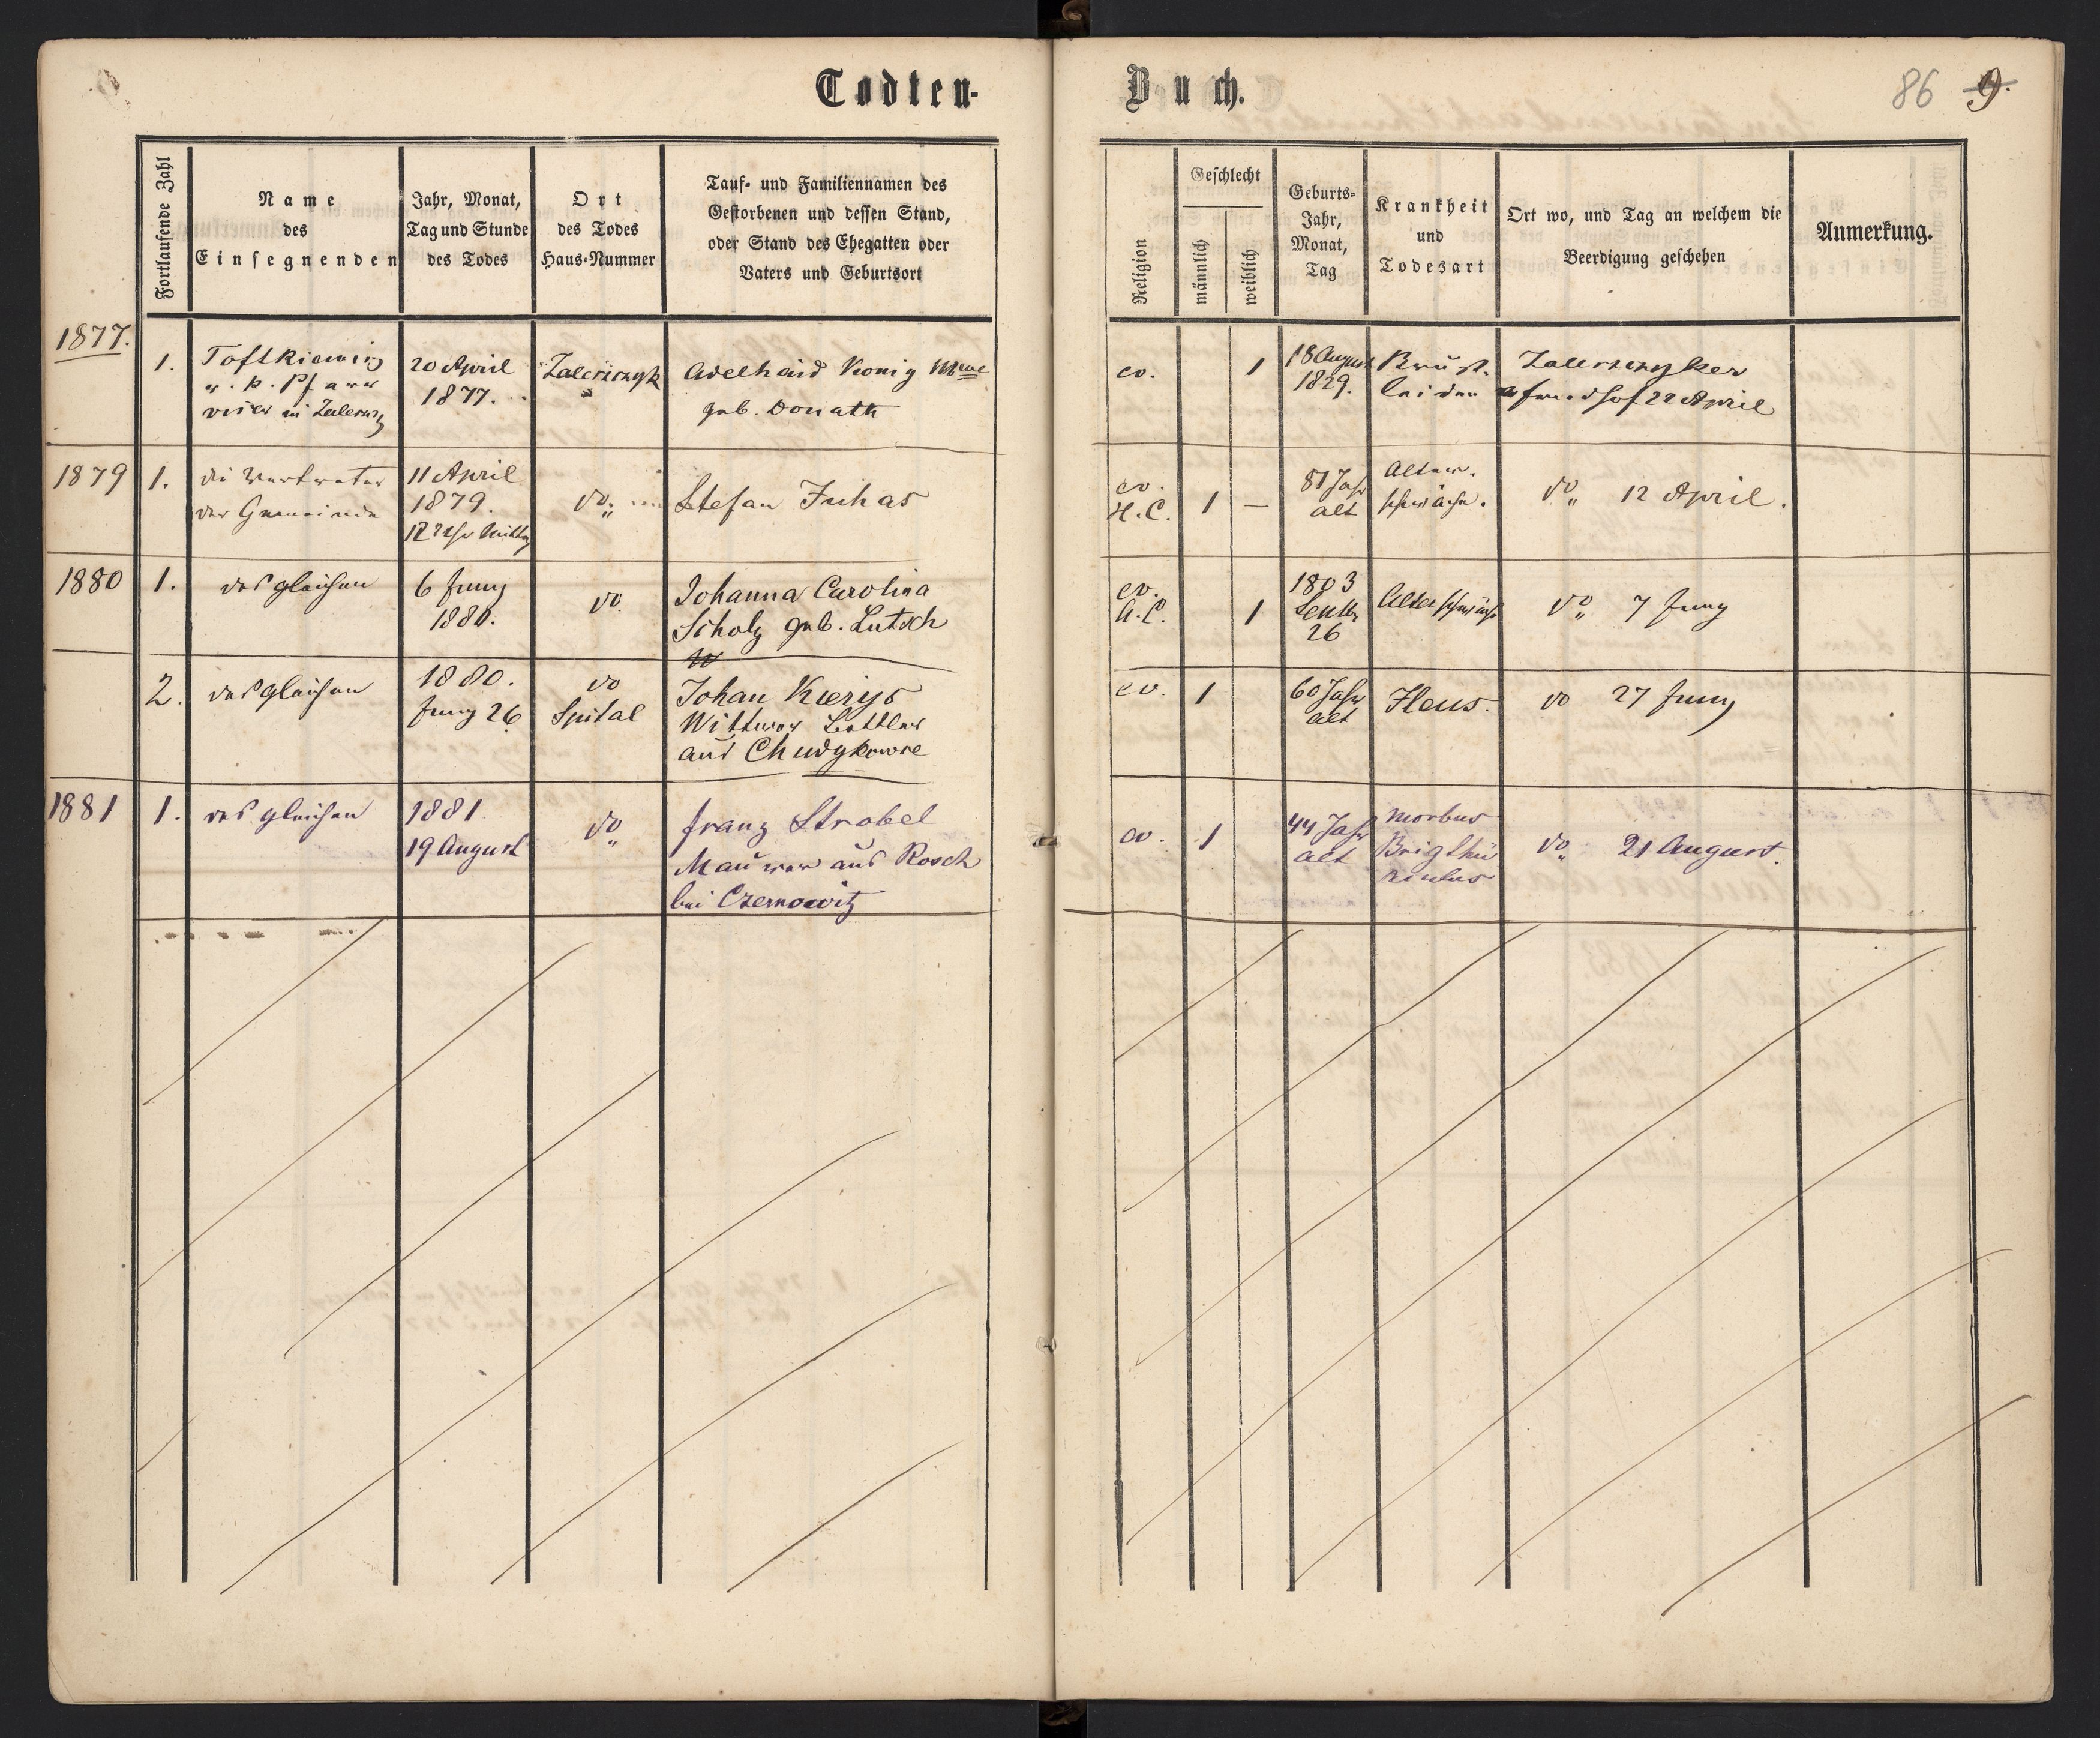 Todten-
Buch.
86 9.
Fortlaufende Zahl
Name
des
Einsegnenden
Jahr, Monat,
Tag und Stunde
des Todes
Ort
des Todes
Haus-Nummer
Tauf- und Familiennamen des
Gestorbenen und dessen Stand,
oder Stand des Ehegatten oder
Vaters und Geburtsort
Religion
Geschlecht
männlich
weiblich
Geburts-
Jahr,
Monat,
Tag
Krankheit
und
Todesart
Ort wo, und Tag an welchem die
Beerdigung geschehen
Anmerkung.
1877.
1.
r. k. Pfarr
in
20 April
1877.
Adelhaid Konig
geb. Donath
ev.
1
18 August
1829.
Brust-
leiden
22 April
1879
1.
der Gemeinde
11 April
1879.
do.
Stefan Juhas
ev.
H. C.
1 —
81 Jahr
alt
Alters-
schwäche.
do 12 April.
1880
1.
desgleichen
6 Juny
1880.
do.
Johanna Carolina
Scholz geb. Lutsch
ev.
A. C.
1
1803
26
Altersschwäche
do 7 Juny
2.
desgleichen
1880.
Juny 26
do
Spital
Johan
Wittwer Bettler
aus
ev.
1
60 Jahr
alt
Ileus.
do 27 Juny
1881
1.
desgleichen
1881
19 August
do
Franz Strobel
Maurer aus Rosch
bei Czernowitz
ev.
1
44 Jahr
alt
Morbus
do 21 August.